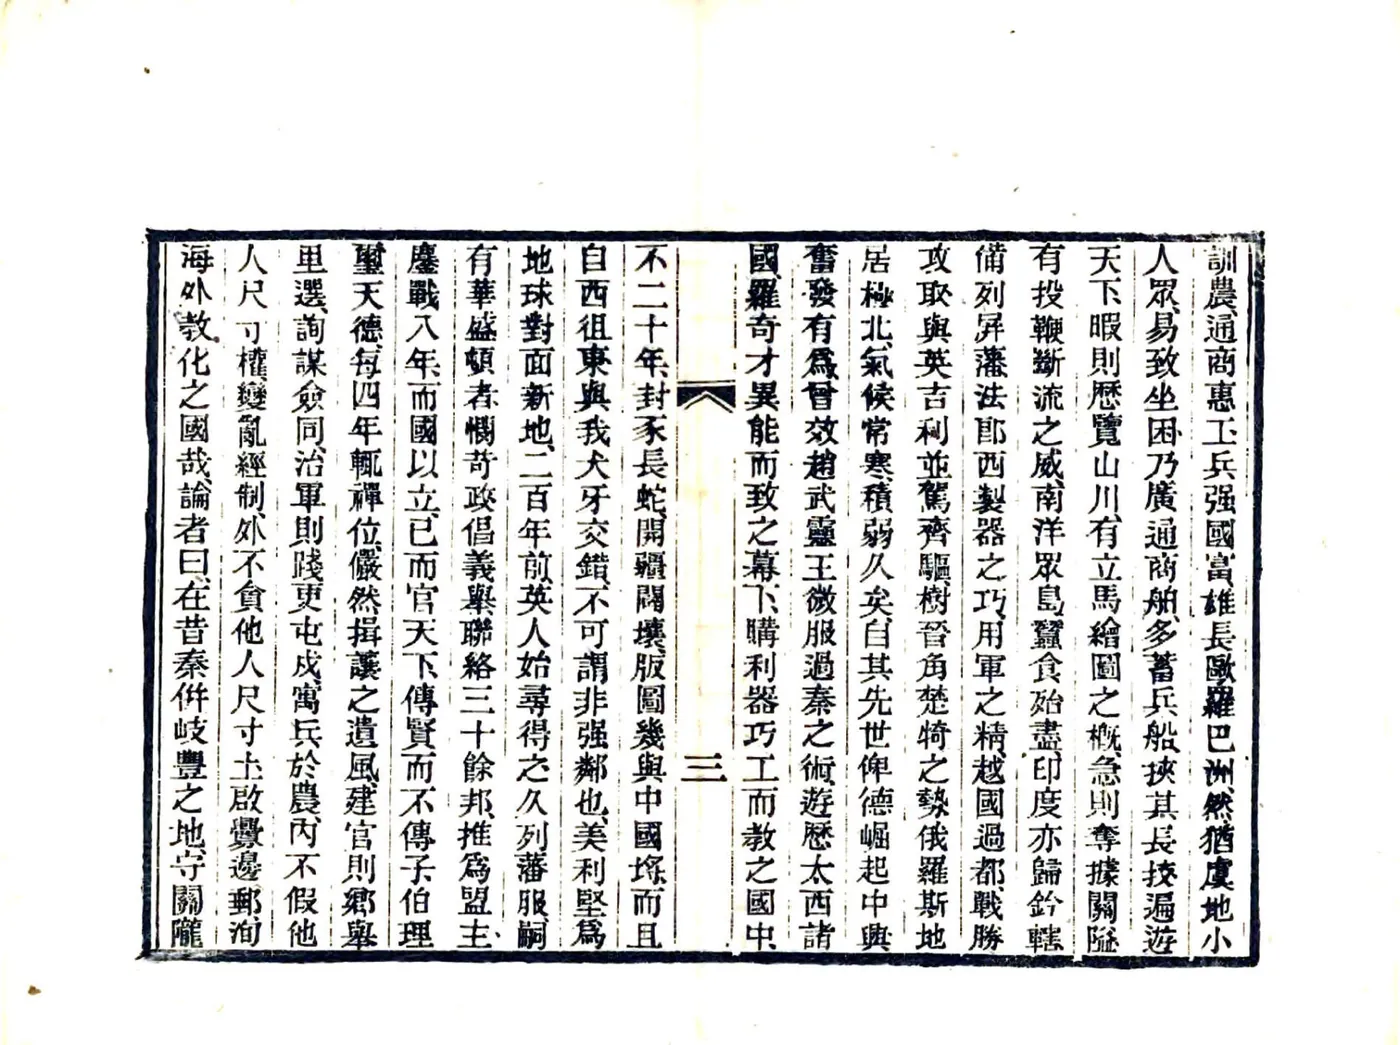 訓農、通商惠工、兵强國富、雄長歐羅巴洲、然猶虞地小
人眾、易致坐困、乃廣通商舶、多蓄兵船、挾其長技、遍遊
天下、暇則歷覽山川、有立馬繪圖之概、急則奪據關隘、
有投鞭斷流之威、南洋眾島、蠶食殆盡、印度亦歸鈐轄
備列屏藩、法郎西製器之巧、用軍之精、越國過都、戰勝
攻取、與英吉利並駕齊驅、樹晉角楚犄之勢、俄羅斯地
居極北、氣候常寒、積弱久矣、自其先世俾德崛起中興
奮發有爲、曾效趙武靈王微服過秦之術、遊歷太西諸
國、羅奇才異能而致之幕下、購利器巧工而教之國中、
三
不二十年、封豕長蛇、開疆闢壤、版圖幾與中國埒、而且
自西徂東、與我犬牙交錯、不可謂非强鄰也、美利堅爲
地球對面新地、二百年前、英人始尋得之、久列藩服、嗣
有華盛頓者、憫苛政、倡義舉、聯絡三十餘邦、推爲盟主、
鏖戰八年、而國以立、已而官天下、傳賢而不傳子、伯理
璽天德每四年輒禪位、儼然揖讓之遺風、建官則鄉舉
里選、詢謀僉同、治軍則踐更屯戍、寓兵於農、內不假他
人尺寸權、變亂經制、外不貪他人尺寸土、啟釁邊郵、洵
海外教化之國哉、論者曰、在昔秦併岐豐之地、守關隴